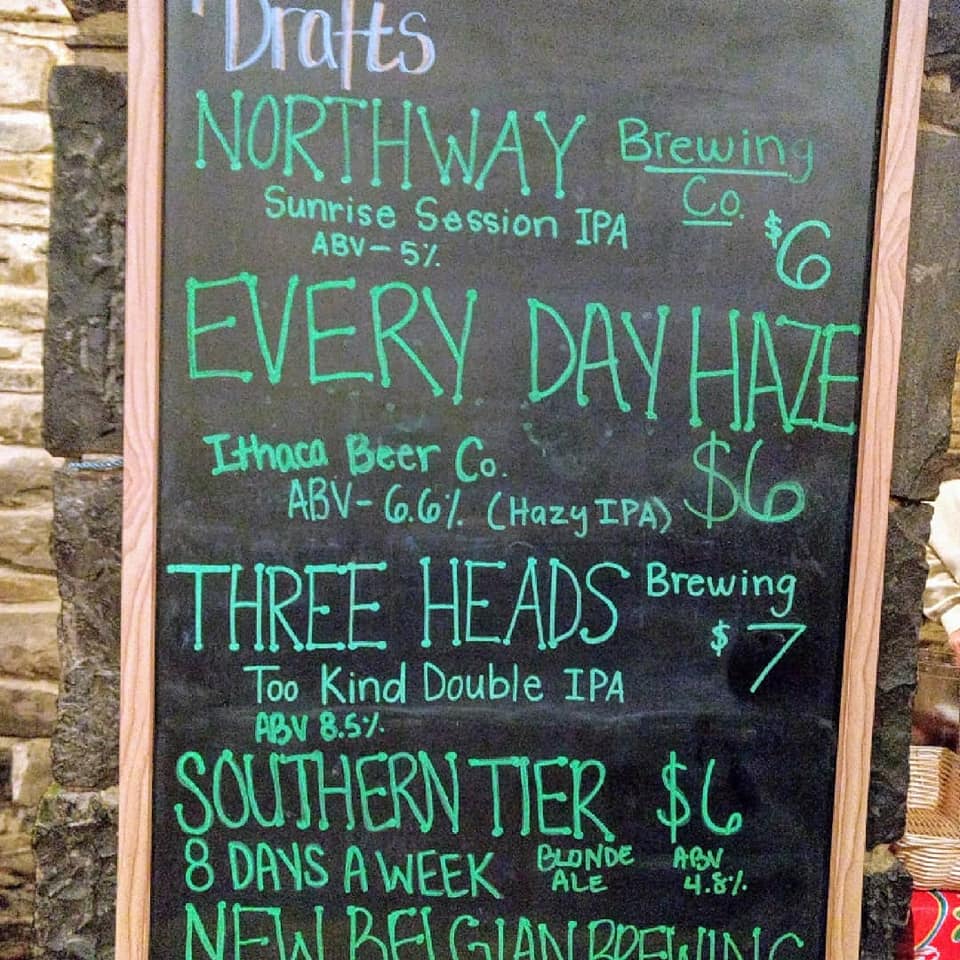 Drafts
NORTHWAY Brewing Co.
Sunrise Session IPA
ABV - 5% $6
EVERY DAY HAZE
Ithaca Beer Co. $6
ABV - 6.6% (Hazy IPA)
THREE HEADS Brewing
$7
Too Kind Double IPA
ABV 8.5%
SOUTHERN TIER $6
8 DAYS A WEEK BLONDE ALE ABV 4.8%
NEW BELGIAN BREWING